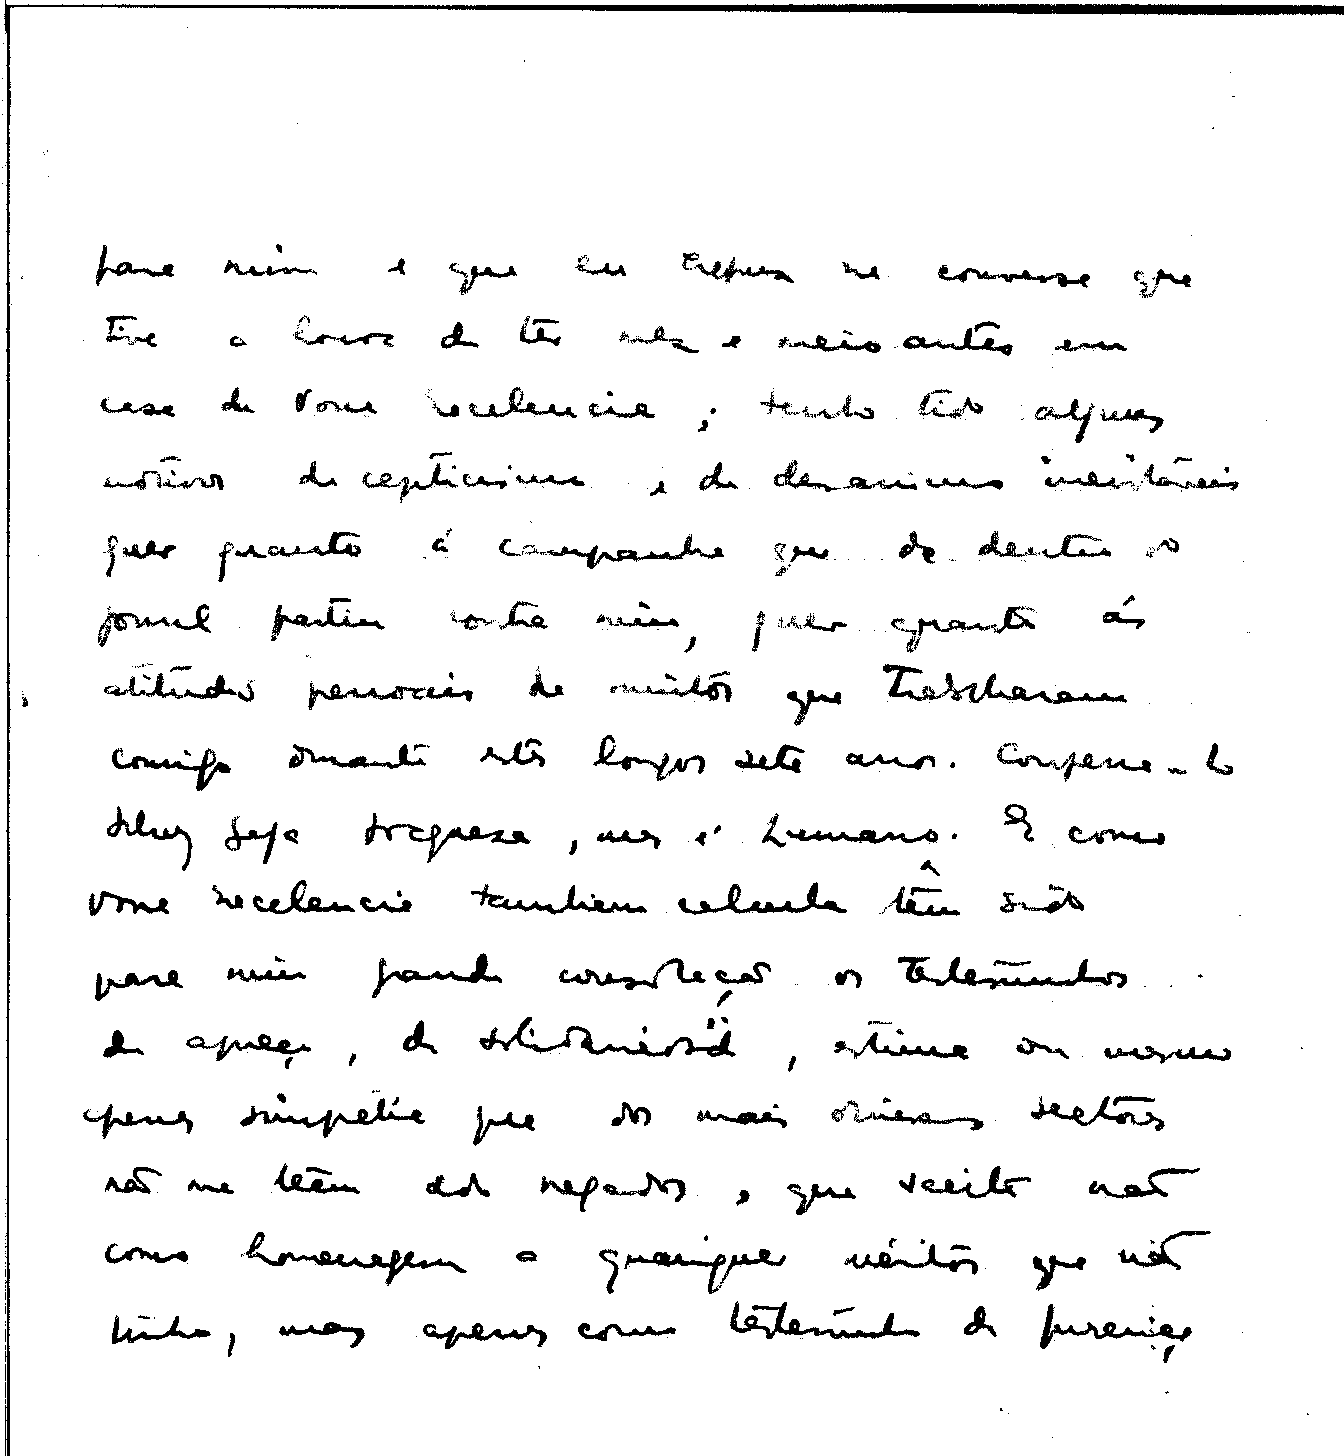 para mim e que eu expus na conversa que
tive a honra de ter mez e meio antes em
casa de Vossa Excelencia; tenho tido alguns
motivos de cepticismo e de desanimo inevitáveis
quer quanto á campanha que de dentro do
jornal partiu contra mim, quer quanto ás
atitudes pessoais de muitos que trabalharam
comigo durante estes longos sete anos. Confessa-lo
talvez seja fraqueza, mas é humano. E como
Vossa Excelencia tambem calcula têm sido
para mim grande consolação os testemunhos
de apreço, de solidariedade, estima ou mesmo
apenas simpatia que dos mais diversos sectores
não me têem sido negados, que aceito não
como homenagem a quaisquer méritos que não
tinha, mas apenas como testemunho de